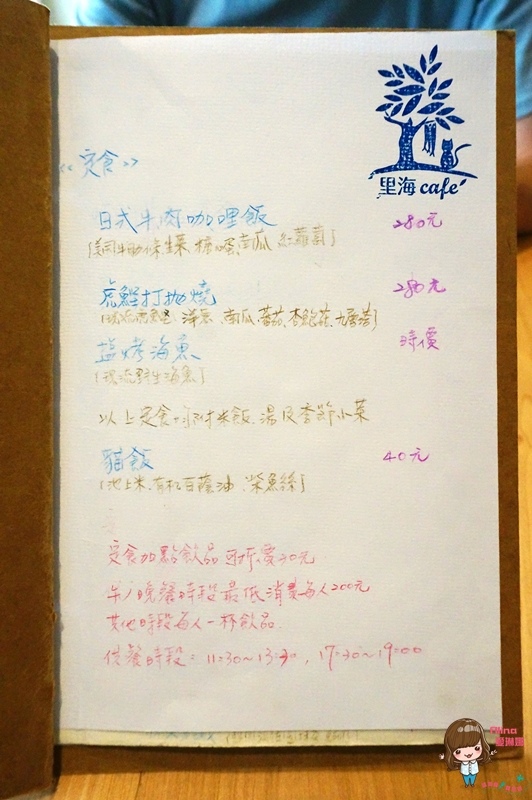 里海 cafe'
<<定食>>
日式牛肉咖哩飯 280元
(美國牛肋條 生菜、糖心蛋、南瓜、紅蘿蔔)
虎鰹打拋燒 280元
洋蔥、南瓜、蕃茄、杏鮑菇、九層塔)
鹽烤海魚 時價
(現流野生海魚)
以上定食、附米飯、湯及季節小菜
貓飯 40元
(池上米、有機百蔭油、柴魚絲)
定食加點飲品可折價30元
午/晚餐時段最低消費每人200元
其他時段每人一杯飲品
供餐時段：11:30~13:30，17:30~19:00
Anna
愛琳娜